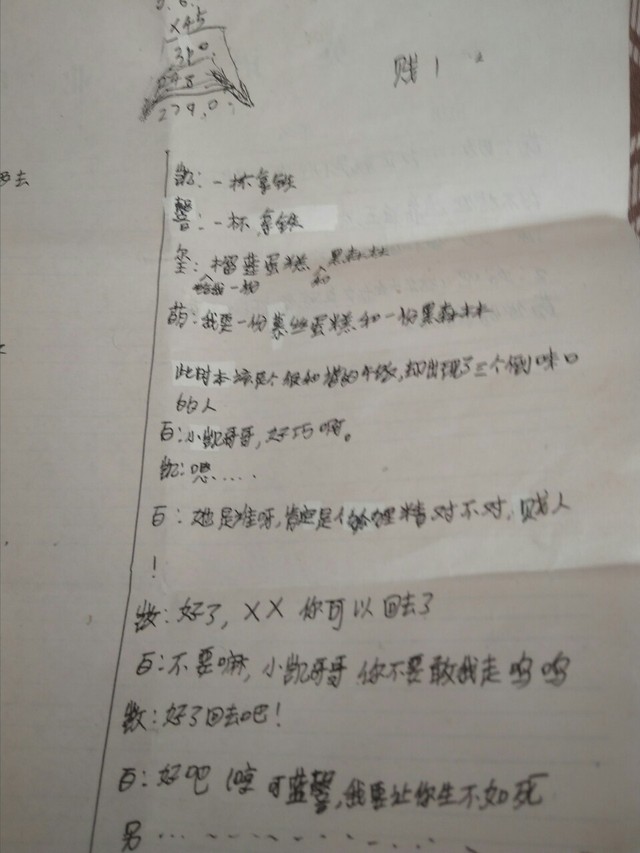 ×45
310
279.0
贱！
多去
凯：一杯拿铁
馨：一杯拿铁
玺：榴莲蛋糕和黑森林
给我一份
萌：我要一份慕丝蛋糕和一份黑森林
此时本该是个很和谐的午饭,却出现了三个倒咪口
的人
百：小凯哥哥,好巧啊。
凯：嗯....
百：她是谁呀,肯定是个狐狸精对不对,贱人
！
数：好了,XX你可以回去了
百：不要嘛,小凯哥哥你不要敢我走呜呜
数：好了回去吧！
百：好吧(哼 蓝馨,我要让你生不如死
男…